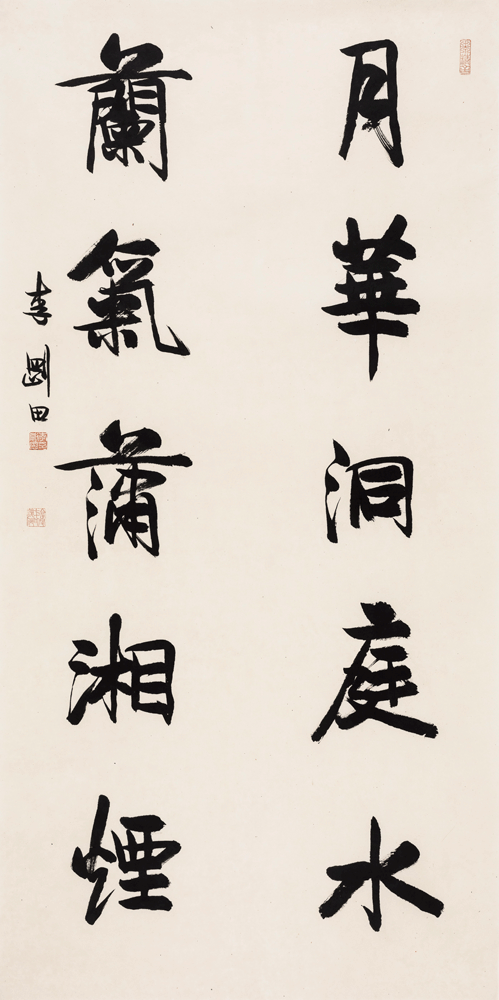 月華洞庭水
蘭氣瀟湘煙
李剛田